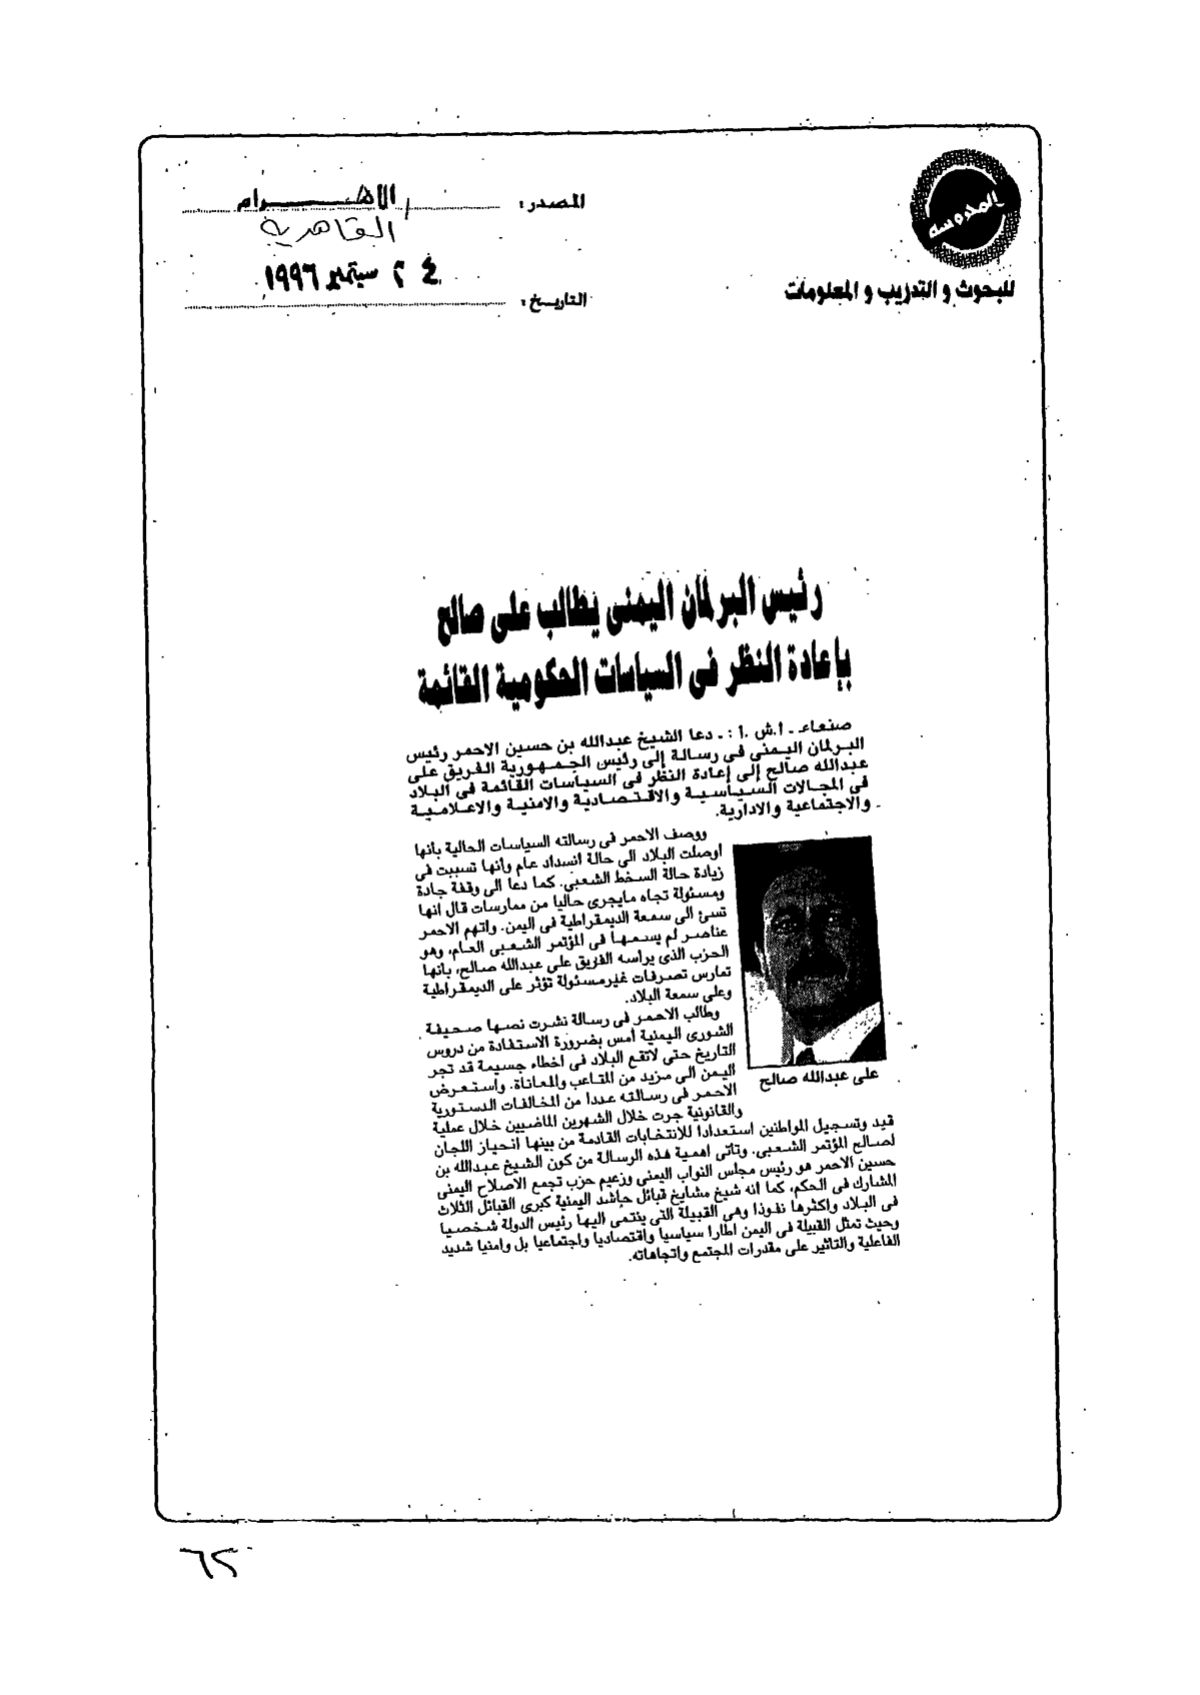 المحروسة
للبحوث و التدريب و المعلومات
المصدر: الاهرام
القاهرية
التاريخ: ٢٤ سبتمبر ١٩٩٦
رئيس البرلمان اليمنى يطالب على صالح
بإعادة النظر فى السياسات الحكومية القائمة
صنعاء ـ ا.ش.ا : ـ دعا الشيخ عبدالله بن حسين الاحمر رئيس
البرلمان اليمنى فى رسالة إلى رئيس الجمهورية الفريق على
عبدالله صالح إلى إعادة النظر فى السياسات القائمة فى البلاد
فى المجالات السياسية والاقتصادية والامنية والاعلامية
والاجتماعية والادارية.
ووصف الاحمر فى رسالته السياسات الحالية بانها
اوصلت البلاد الى حالة انسداد عام وانها تسببت فى
زيادة حالة السخط الشعبى. كما دعا الى وقفة جادة
ومسئولة تجاه مايجرى حاليا من ممارسات قال انها
تسئ الى سمعة الديمقراطية فى اليمن. واتهم الاحمر
عناصر لم يسمها فى المؤتمر الشعبى العام، وهو
الحزب الذى يراسه الفريق على عبدالله صالح، بانها
تمارس تصرفات غيرمسئولة تؤثر على الديمقراطية
وعلى سمعة البلاد.
وطالب الاحمر فى رسالة نشرت نصها صحيفة
الشورى اليمنية أمس بضرورة الاستفادة من دروس
التاريخ حتى لاتقع البلاد فى اخطاء جسيمة قد تجر
اليمن الى مزيد من المتاعب والمعاناة. واستعرض
الاحمر فى رسالته عددا من المخالفات الدستورية
والقانونية جرت خلال الشهرين الماضيين خلال عملية
على عبدالله صالح
قيد وتسجيل المواطنين استعدادا للانتخابات القادمة من بينها انحياز اللجان
لصالح المؤتمر الشعبى. وتاتى اهمية هذه الرسالة من كون الشيخ عبدالله بن
حسين الاحمر هو رئيس مجلس النواب اليمنى وزعيم حزب تجمع الاصلاح اليمنى
المشارك فى الحكم، كما انه شيخ مشايخ قبائل حاشد اليمنية كبرى القبائل الثلاث
فى البلاد واكثرها نفوذا وهى القبيلة التى ينتمى اليها رئيس الدولة شخصيا
وحيث تمثل القبيلة فى اليمن اطارا سياسيا واقتصاديا واجتماعيا بل وامنيا شديد
الفاعلية والتاثير على مقدرات المجتمع واتجاهاته.
٦٢